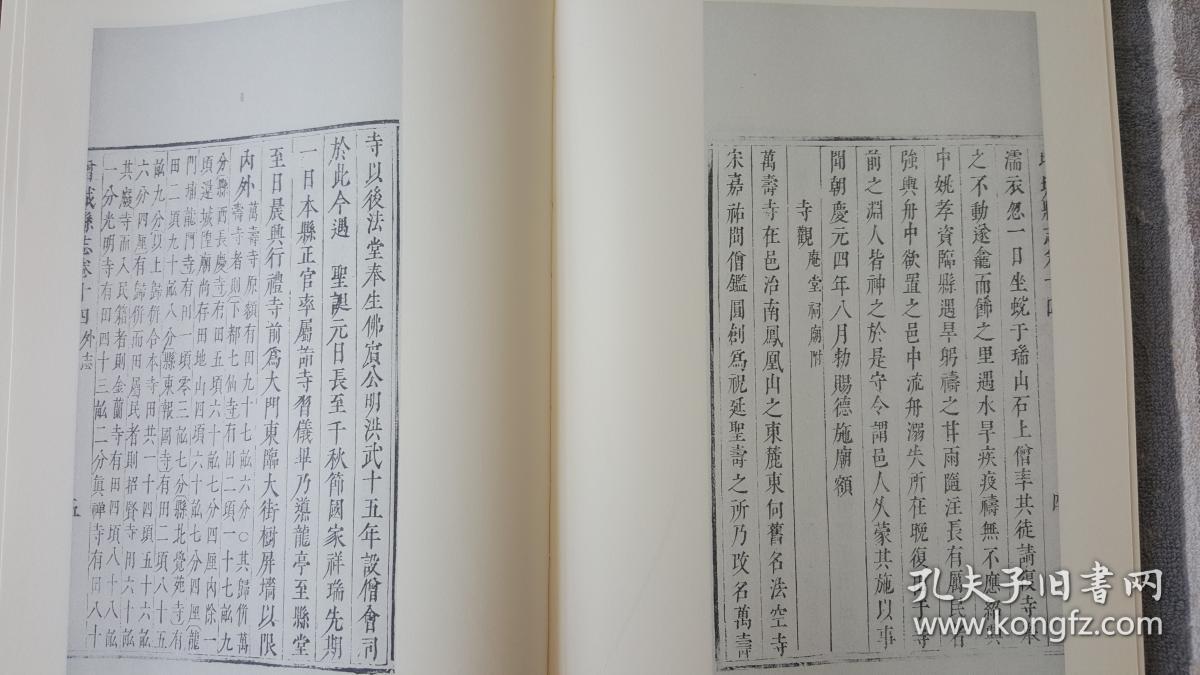 濡衣忽一日坐蛻于瑞山石上僧率其徒請復寺本
之不動遂龕而飾之里遇水旱疾疫禱無不應紹興
中姚孝資臨縣遇旱躬禱之甘雨隨注長有厲民者
強輿舟中欲置之邑中流舟溺失所在晚復
前之淵人皆神之於是守令謂邑人久蒙其施以事
聞朝慶元四年八月勅賜德施廟額
寺觀 庵堂祠廟附
萬壽寺在邑治南鳳凰山之東麓東向舊名法空寺
宋嘉祐間僧鑑圓創為祝延聖壽之所乃改名萬壽
寺以後法堂奉生佛賓公明洪武十五年設僧會司
於此今遇 聖誕元日長至千秋節國家祥瑞先期
一日本縣正官率屬詣寺習儀畢乃遵龍亭至縣堂
至日晨興行禮寺前為大門東臨大街樹屏墻以限
內外 萬壽寺原額有田九十七畝六分○其歸併萬
壽寺者則下都七仙寺有田二頃一十七畝九
分縣西長慶寺有田五頃六十畝七分四厘內除一
頃遷城隍廟尚存田地山四頃六十畝七分四厘龍
門埔龍門寺有田一頃零三畝七分縣北覺苑寺有
田二頃九十畝八分縣東報國寺有田二頃八十五
畝九分以上歸併合本寺田共一十四頃五十六畝
六分四厘有歸併而田屬民者則招賢寺田六十畝
其廢寺而入民籍者則金蘭寺有田四頃八十八畝
一分光明寺有田四十三畝二分真禪寺有田八十
增城縣志卷十四外志
五
孔夫子旧书网
www.kongfz.com